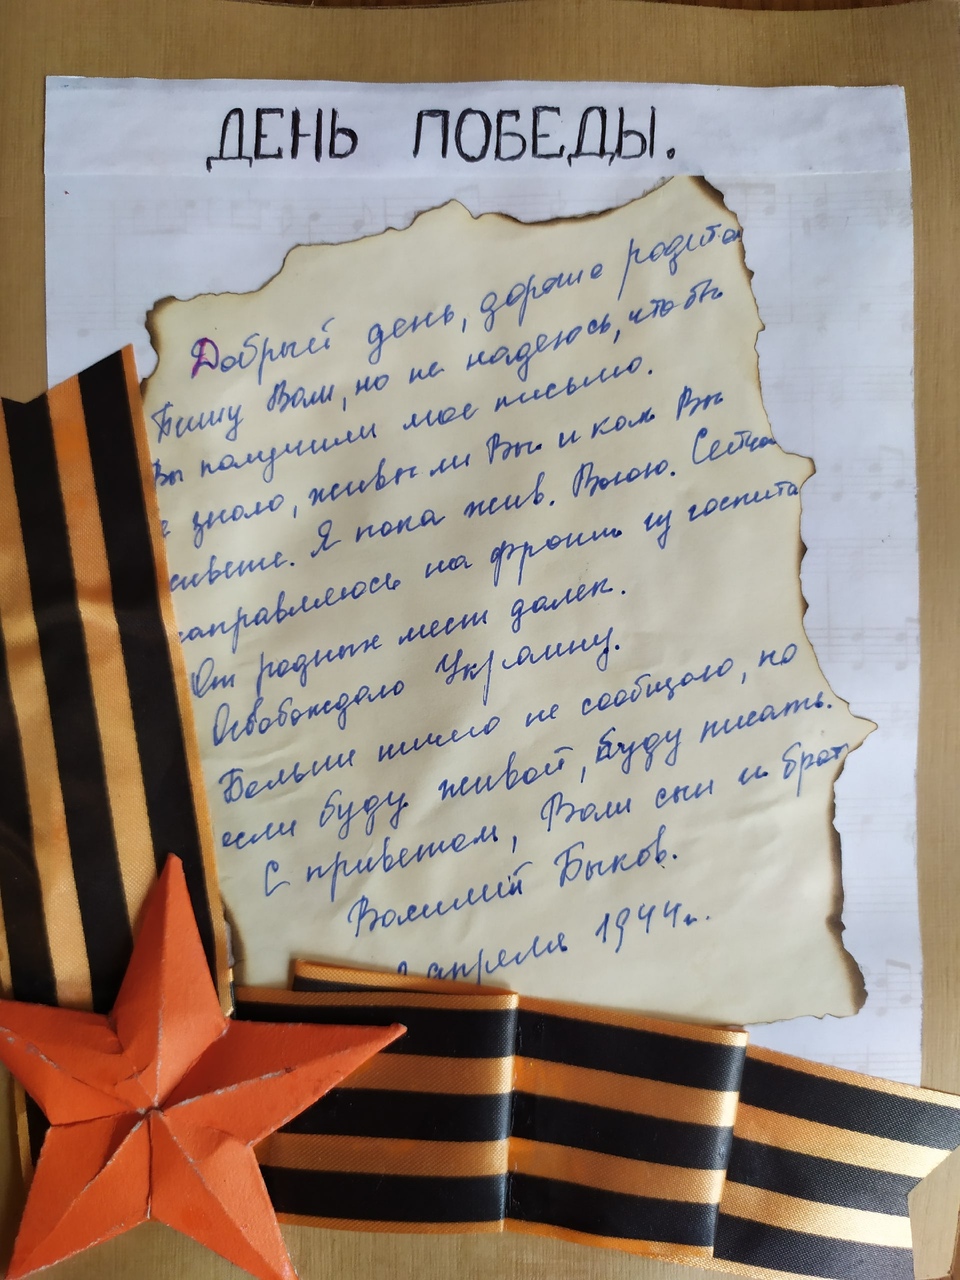 ДЕНЬ ПОБЕДЫ.
Добрый день, дорогие родите
Пишу Вам, но не надеюсь, чтобы
Вы получили мое письмо.
е знаю, живы ли Вы и как Вы
живете. Я пока жив. Воюю. Сейча
направляюсь на фронт из госпита
От родных мест далек.
Освобождаю Украину.
Больше ничего не сообщаю, но
если буду живой, буду писать.
С приветом, Ваш сын и брат
Василий Быков.
апреля 1944г.